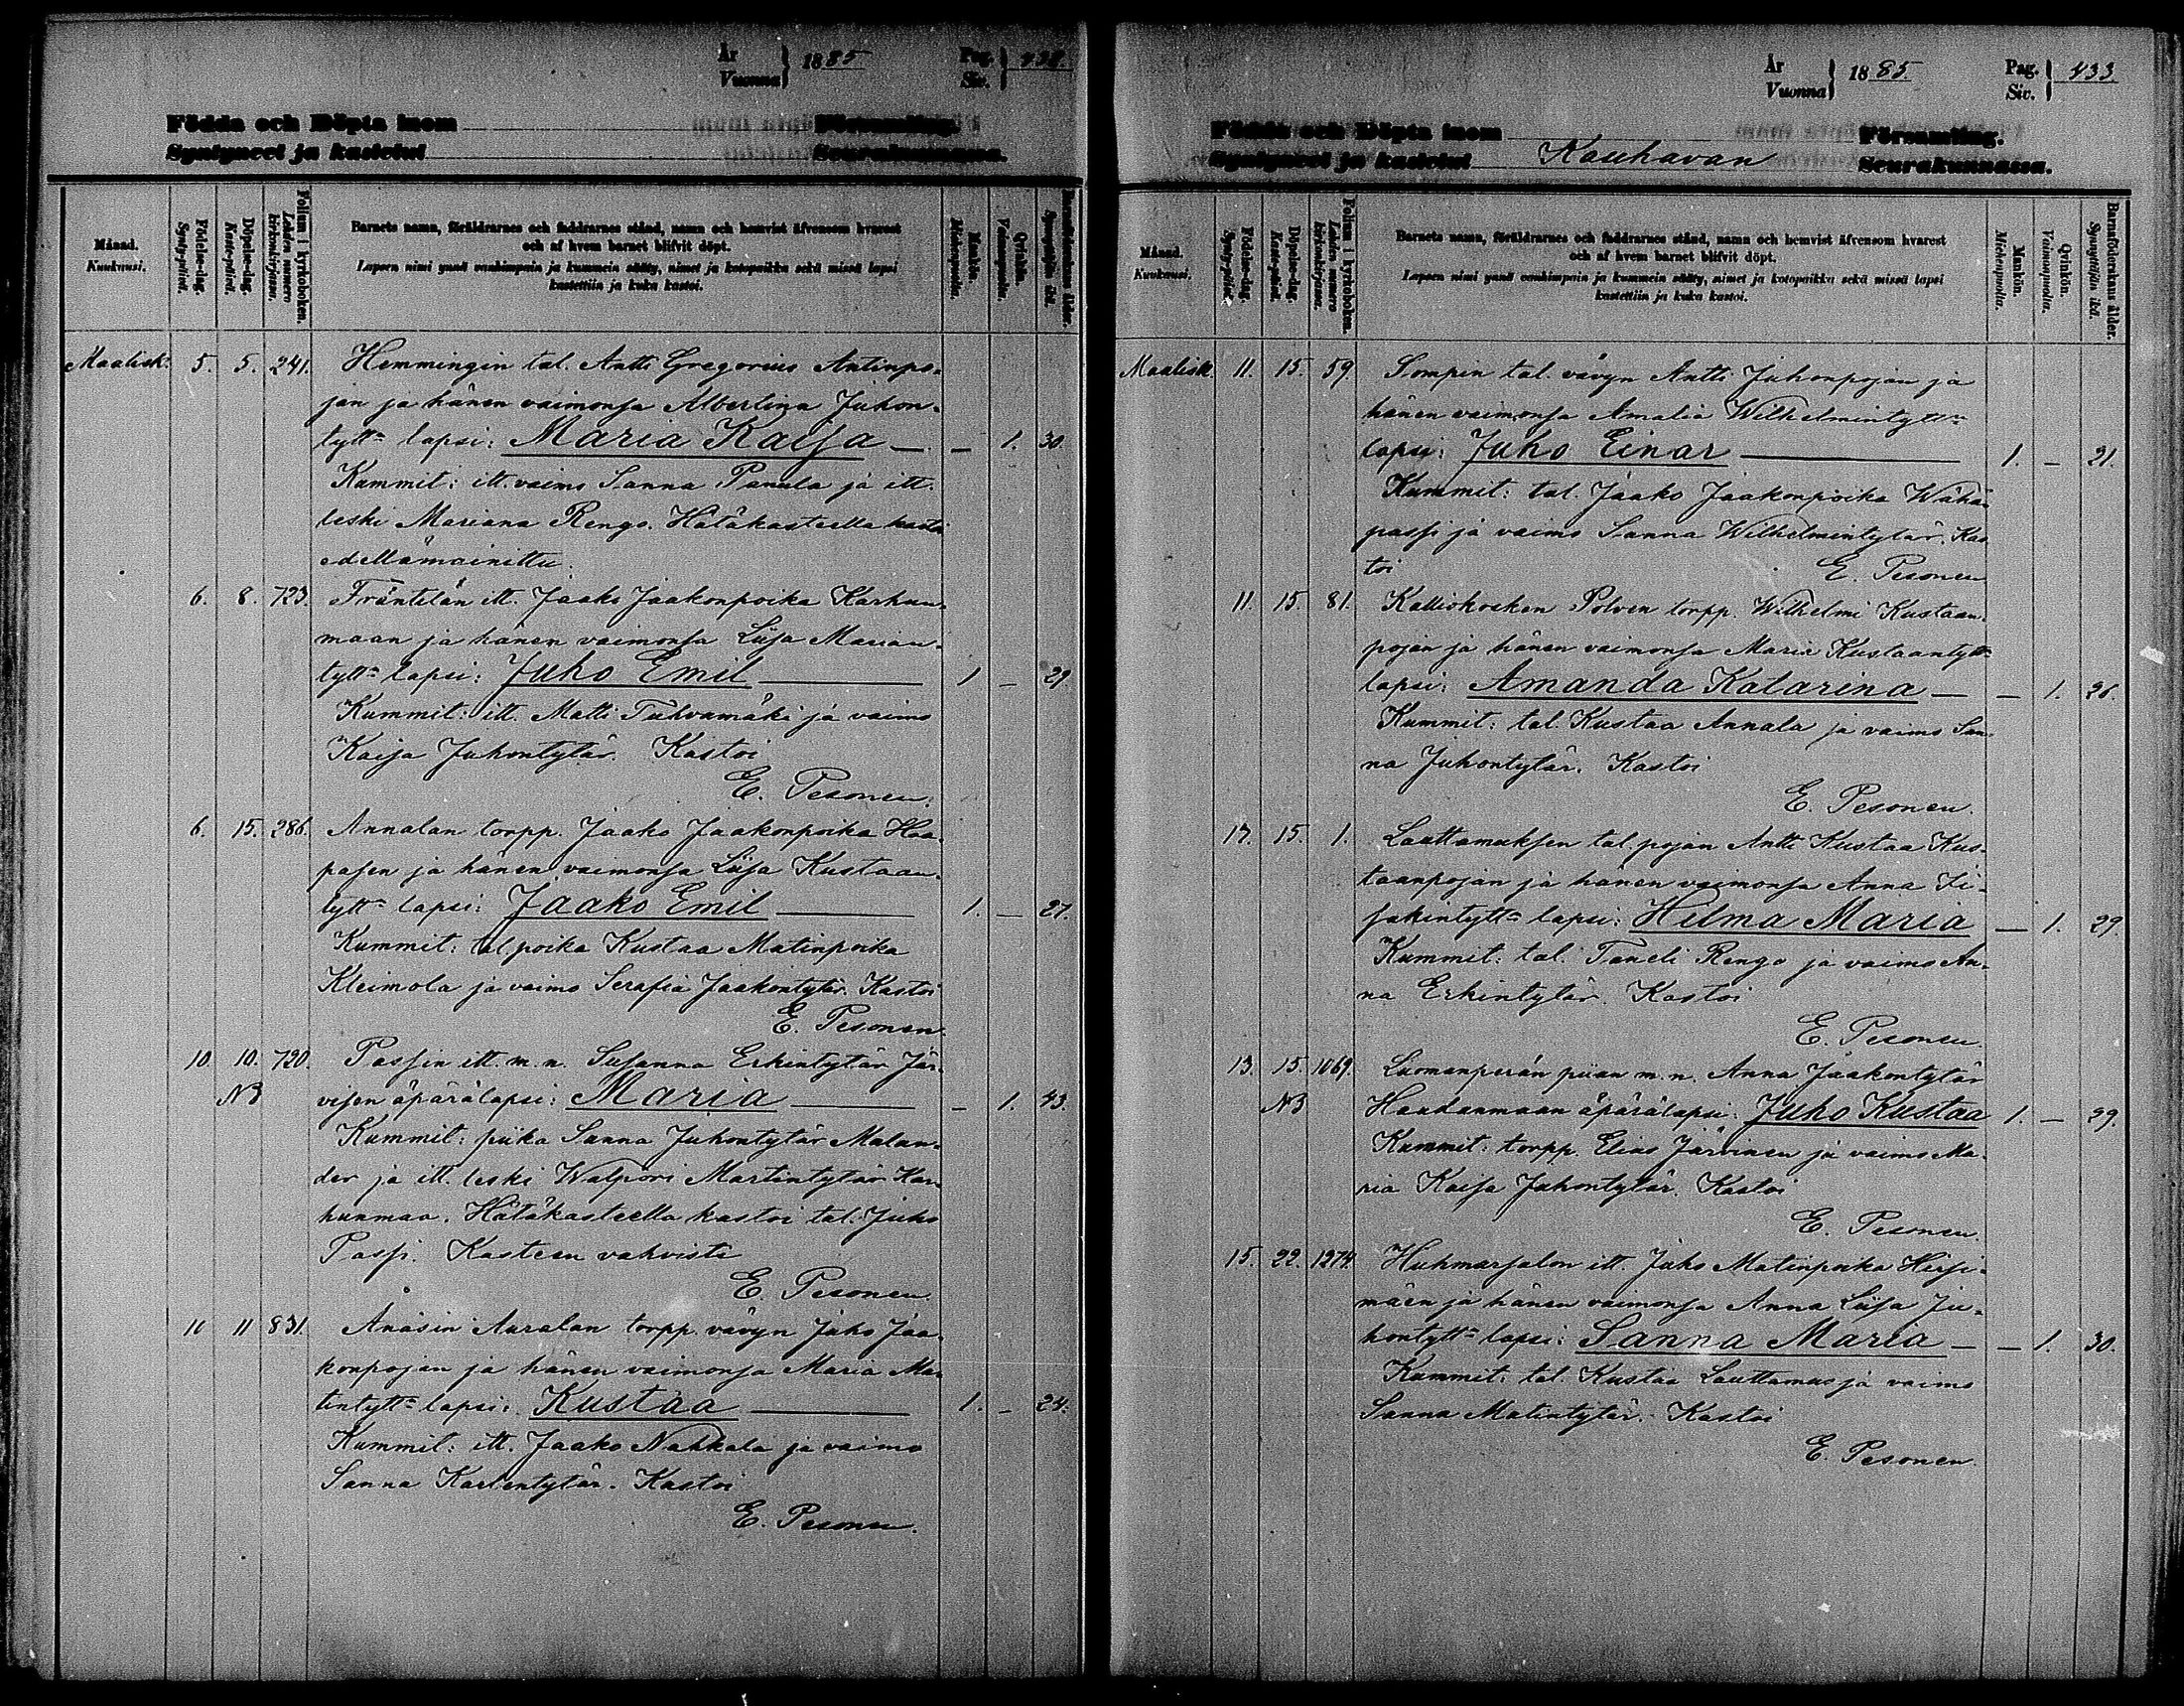 År
Vuonna } 1885 Pag.
Siv. } 432.
Födda och Döpta inom Församling.
Syntyneet ja kastetut Seurakunnassa.
Månad.
Kuukausi.
Födelse-dag.
Synty-päivä.
Döpelse-dag.
Kaste-päivä.
Folium i kyrkoboken.
Lehden numero kirkonkirjassa.
Barnets namn, föräldrarnes och faddrarnes stånd, namn och hemvist äfvensom hvarest
och af hvem barnet blifvit döpt.
Lapsen nimi ynnä vanhimpain ja kummein sääty, nimet ja kotopaikka sekä missä lapsi
kastettiin ja kuka kastoi.
Mankön.
Miehenpuolia.
Qvinkön.
Vaimonpuolia.
Barnaföderskans ålder.
Synnyttäjän ikä.
Maalisk. 5. 5. 241. Hemmingin tal. Antti Gregorius Antinpo-
jan ja hänen vaimonsa Albertina Juhon-
tytt:n lapsi: Maria Kaisa — — 1. 30.
Kummit: itt. vaimo Sanna Panula ja itt.
leski Mariana Rengo. Hätäkasteella kastoi
edellämainittu.
6. 8. 723. Fräntilän itt. Jaako Jaakonpoika Karhun-
maan ja hänen vaimonsa Liisa Marian-
tytt:n lapsi: Juho Emil — 1 — 29.
Kummit: itt. Matti Tuhvamäki ja vaimo
Kaisa Juhontytär. Kastoi
E. Pesonen.
6. 15. 286. Annalan torpp. Jaako Jaakonpoika Haa-
pasen ja hänen vaimonsa Liisa Kustaan-
tytt:n lapsi: Jaako Emil — 1. — 27.
Kummit: tal. poika Kustaa Matinpoika
Kleimola ja vaimo Serafia Jaakontytär. Kastoi
E. Pesonen.
10. 10. 720. Passin itt. m. n. Susanna Erkintytär Jär-
NB visen äpärälapsi: Maria — — 1. 43.
Kummit: piika Sanna Juhontytär Malan-
der ja itt. leski Walpori Martintytär Kar-
hunmaa. Hätäkasteella kastoi tal. Juho
Passi. Kasteen vahvisti
E. Pesonen.
10 11 831. Änäsin Auralan torpp. vävyn Juho Jaa-
konpojan ja hänen vaimonsa Maria Ma-
tintytt:n lapsi: Kustaa — 1. — 24.
Kummit: itt. Jaako Nahkala ja vaimo
Sanna Karlentytär. Kastoi
E. Pesonen.
År
Vuonna } 1885. Pag.
Siv. } 433
Födda och Döpta inom Församling.
Syntyneet ja kastetut Kauhavan Seurakunnassa.
Månad.
Kuukausi.
Födelse-dag.
Synty-päivä.
Döpelse-dag.
Kaste-päivä.
Folium i kyrkoboken.
Lehden numero kirkonkirjassa.
Barnets namn, föräldrarnes och faddrarnes stånd, namn och hemvist äfvensom hvarest
och af hvem barnet blifvit döpt.
Lapsen nimi ynnä vanhimpain ja kummein sääty, nimet ja kotopaikka sekä missä lapsi
kastettiin ja kuka kastoi.
Mankön.
Miehenpuolia.
Qvinkön.
Vaimonpuolia.
Barnaföderskans ålder.
Synnyttäjän ikä.
Maalisk. 11. 15. 59. Sompin tal. vävyn Antti Juhonpojan ja
hänen vaimonsa Amalia Wilhelmintytt:n
lapsi: Juho Einar — 1. — 21.
Kummit: tal. Jaako Jaakonpoika Wähä-
passi ja vaimo Sanna Wilhelmintytär. Kas-
toi E. Pesonen
11. 15. 81. Kalliokosken Polven torpp. Wilhelmi Kustaan-
pojan ja hänen vaimonsa Maria Kustaantytt:n
lapsi: Amanda Katarina — — 1. 26.
Kummit: tal. Kustaa Annala ja vaimo San-
na Juhontytär. Kastoi
E. Pesonen.
15. 1. Lauttamuksen tal. pojan Antti Kustaa Kus-
taanpojan ja hänen vaimonsa Anna Ii-
sakintytt:n lapsi: Hilma Maria — 1. 29.
Kummit: tal. Taneli Rengo ja vaimo An-
na Erkintytär. Kastoi
E. Pesonen
13. 15. 1069. Luomanperän piian m. n. Anna Jaakontytär
NB Haudanmaan äpärälapsi: Juho Kustaa 1. — 29.
Kummit: torpp. Elias Järvinen ja vaimo Ma-
ria Kaisa Juhontytär. Kastoi
E. Pesonen.
15. 22. 1274. Huhmarsalon itt. Juho Matinpoika Hirsi-
mäen ja hänen vaimonsa Anna Liisa Ju-
hontytt:n lapsi: Sanna Maria — — 1. 30.
Kummit: tal. Kustaa Lauttamus ja vaimo
Sanna Matintytär. Kastoi
E. Pesonen.